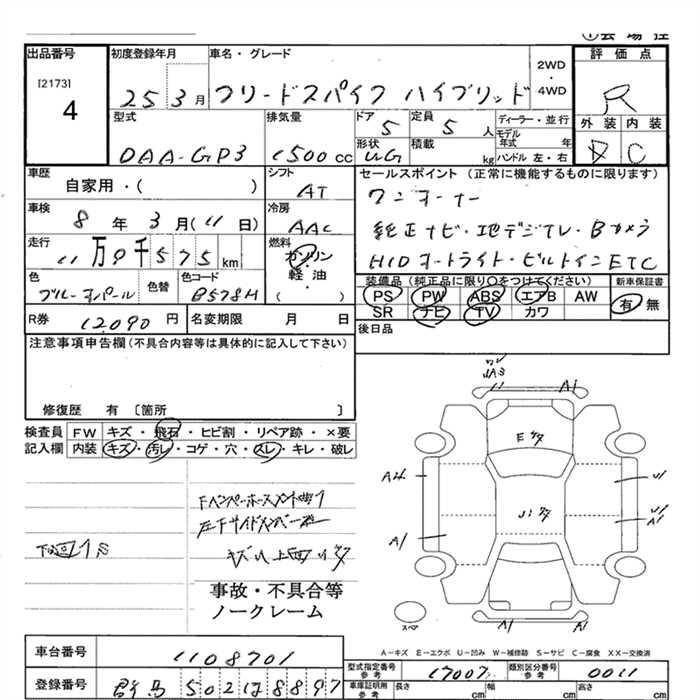 出品番号
[2173]
4
初度登録年月
25 3月
車名・グレード
フリードスパイク ハイブリッド
2WD
・
4WD
評価点
R
外装 内装
D C
型式
DAA-GP3
排気量
1500cc
ドア
5
定員
5人
形状
WG
積載
kg
ディーラー・並行
モデル
年式 年
ハンドル 左・右
車歴
自家用・( )
シフト
AT
セールスポイント (正常に機能するものに限ります)
ワンオーナー
純正ナビ・地デジTV・Bカメラ
HIDオートライト・ビルトインETC
車検
8年3月(11日)
冷房
AAC
走行
11万9千575km
燃料
ガソリン
・
軽油
・
( )
色
ブルーオパール
色替
色コード
B578M
装備品 (純正品に限り○をつけてください)
PS PW ABS エアB AW
SR ナビ TV カワ
新車保証書
有 無
R券
12090円
名変期限 月 日
後日品
注意事項申告欄(不具合内容等は具体的に記入して下さい)
修復歴 有 〔箇所 〕
検査員 FW キズ・飛石・ヒビ割・リペア跡・×要
記入欄 内装 キズ・汚レ・コゲ・穴・スレ・キレ・破レ
A1
E
A4
A1
A1
A1
A1
スペア
事故・不具合等
ノークレーム
A-キズ E-エクボ U-凹み W-補修跡 S-サビ C-腐食 XX-交換済
車台番号
1108701
型式指定番号
参考
17007
類別区分番号
参考
0011
登録番号
群馬 502 ほ 8897
車庫証明用
参考
長さ
cm
幅
cm
高さ
cm